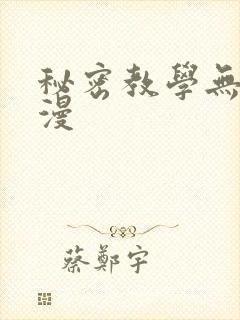 秘密教學無
漫
蔡鄭宇